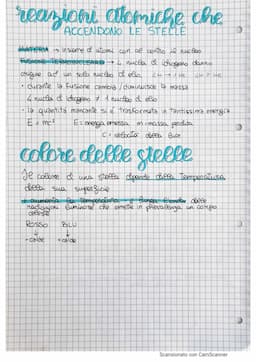 reazioni atomiche che
ACCENDONO LE STELLE
MATERIA → insieme di atomi con al centro il nucleo
FUSIONE TERMONUCLEARE → 4 nuclei di idrogeno danno
origine ad un solo nucleo di elio
• durante la fusione cambia / diminuisce la massa
4 nuclei di idrogeno ≠ 1 nucleo di elio
• la quantità mancante si è trasformata in tantissima energia
E = mc² E = energia emessa m = massa perduta
C = velocità della luce
colore delle stelle
Il colore di una stella dipende dalla temperatura
della sua superficie
• aumenta la temperatura e lunga delle
radiazioni luminose che emette in prevalenza un corpo
celeste
ROSSO BLU
↓ ↓
- calde + calde
Scansionato con CamScanner